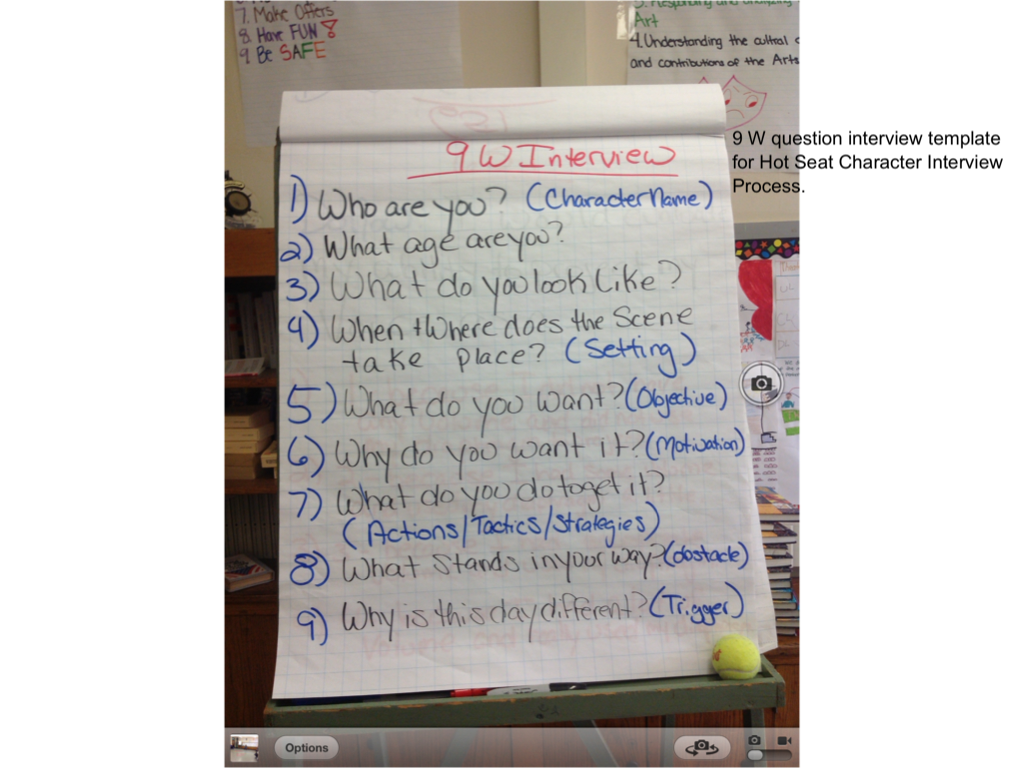 7. Make Offers
8. Have FUN!
9. Be SAFE
Art
4. Understanding the cultral
and contributions of the Arts
9 W question interview template
for Hot Seat Character Interview
Process.
9 W Interview
1) Who are you? (Character Name)
2) What age are you?
3) What do you look Like?
4) When + Where does the Scene
take place? (Setting)
5) What do you want? (Objective)
6) Why do you want it? (Motivation)
7) What do you do to get it?
(Actions/Tactics/Strategies)
8) What Stands in your way? (obstacle)
9) Why is this day different? (Trigger)
Options